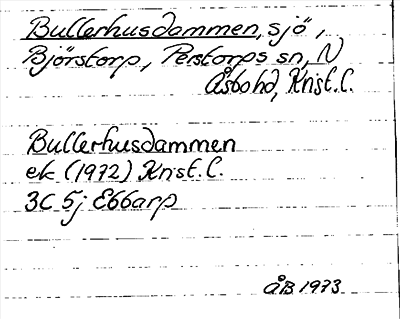 Bullerhusdammen, sjö,
Björstorp, Perstorps sn, N
Åsbo hd, Krist. l.
Bullerhusdammen
ek (1972) Krist. l.
3C 5j Ebbarp
ÅB 1973